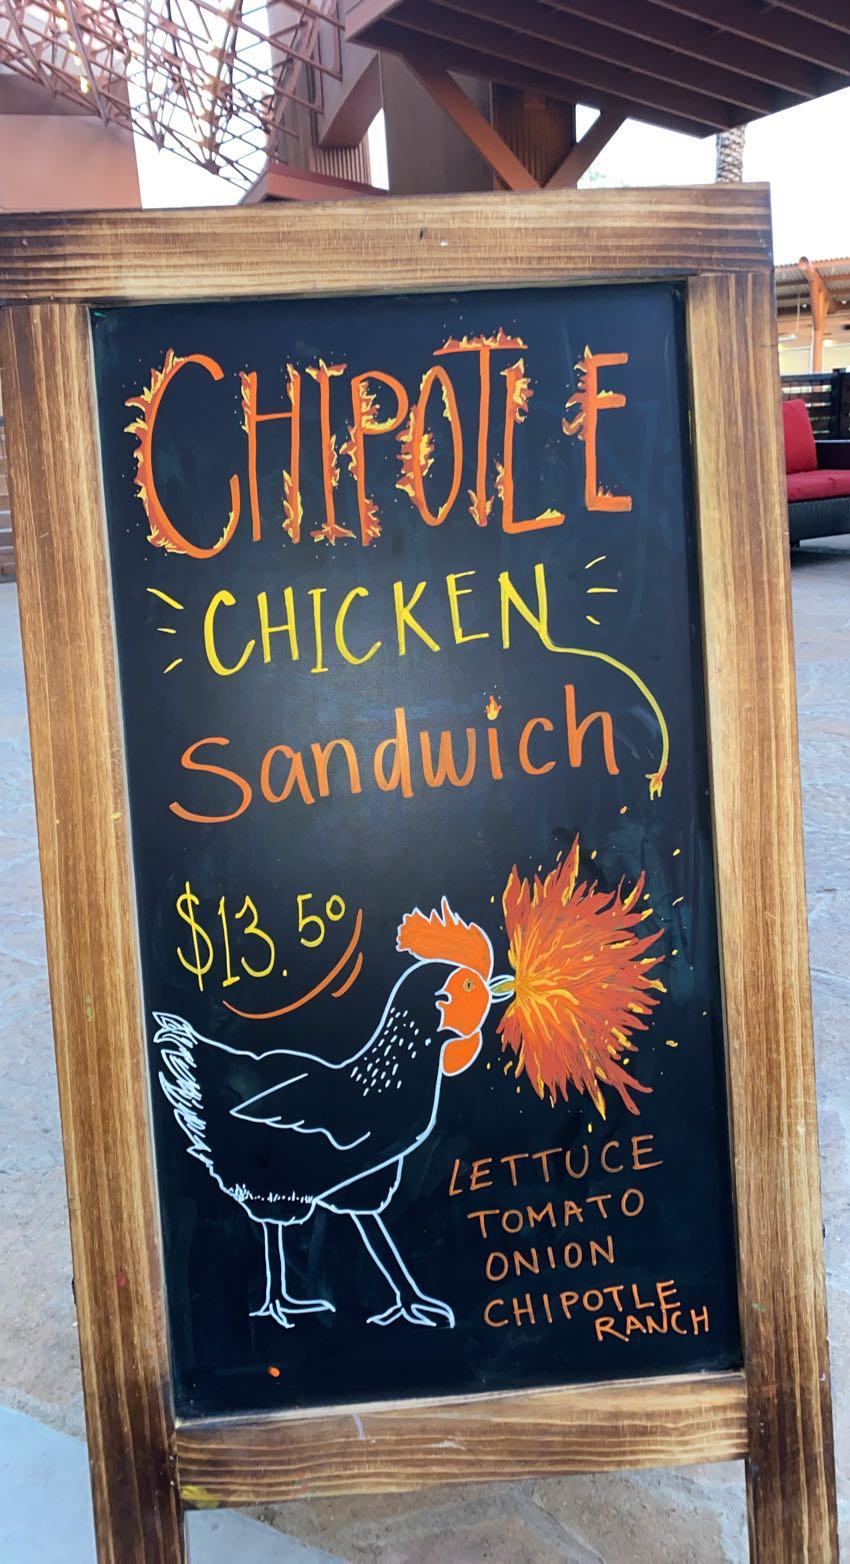 CHIPOTLE
CHICKEN
Sandwich
$13.50
LETTUCE
TOMATO
ONION
CHIPOTLE
RANCH